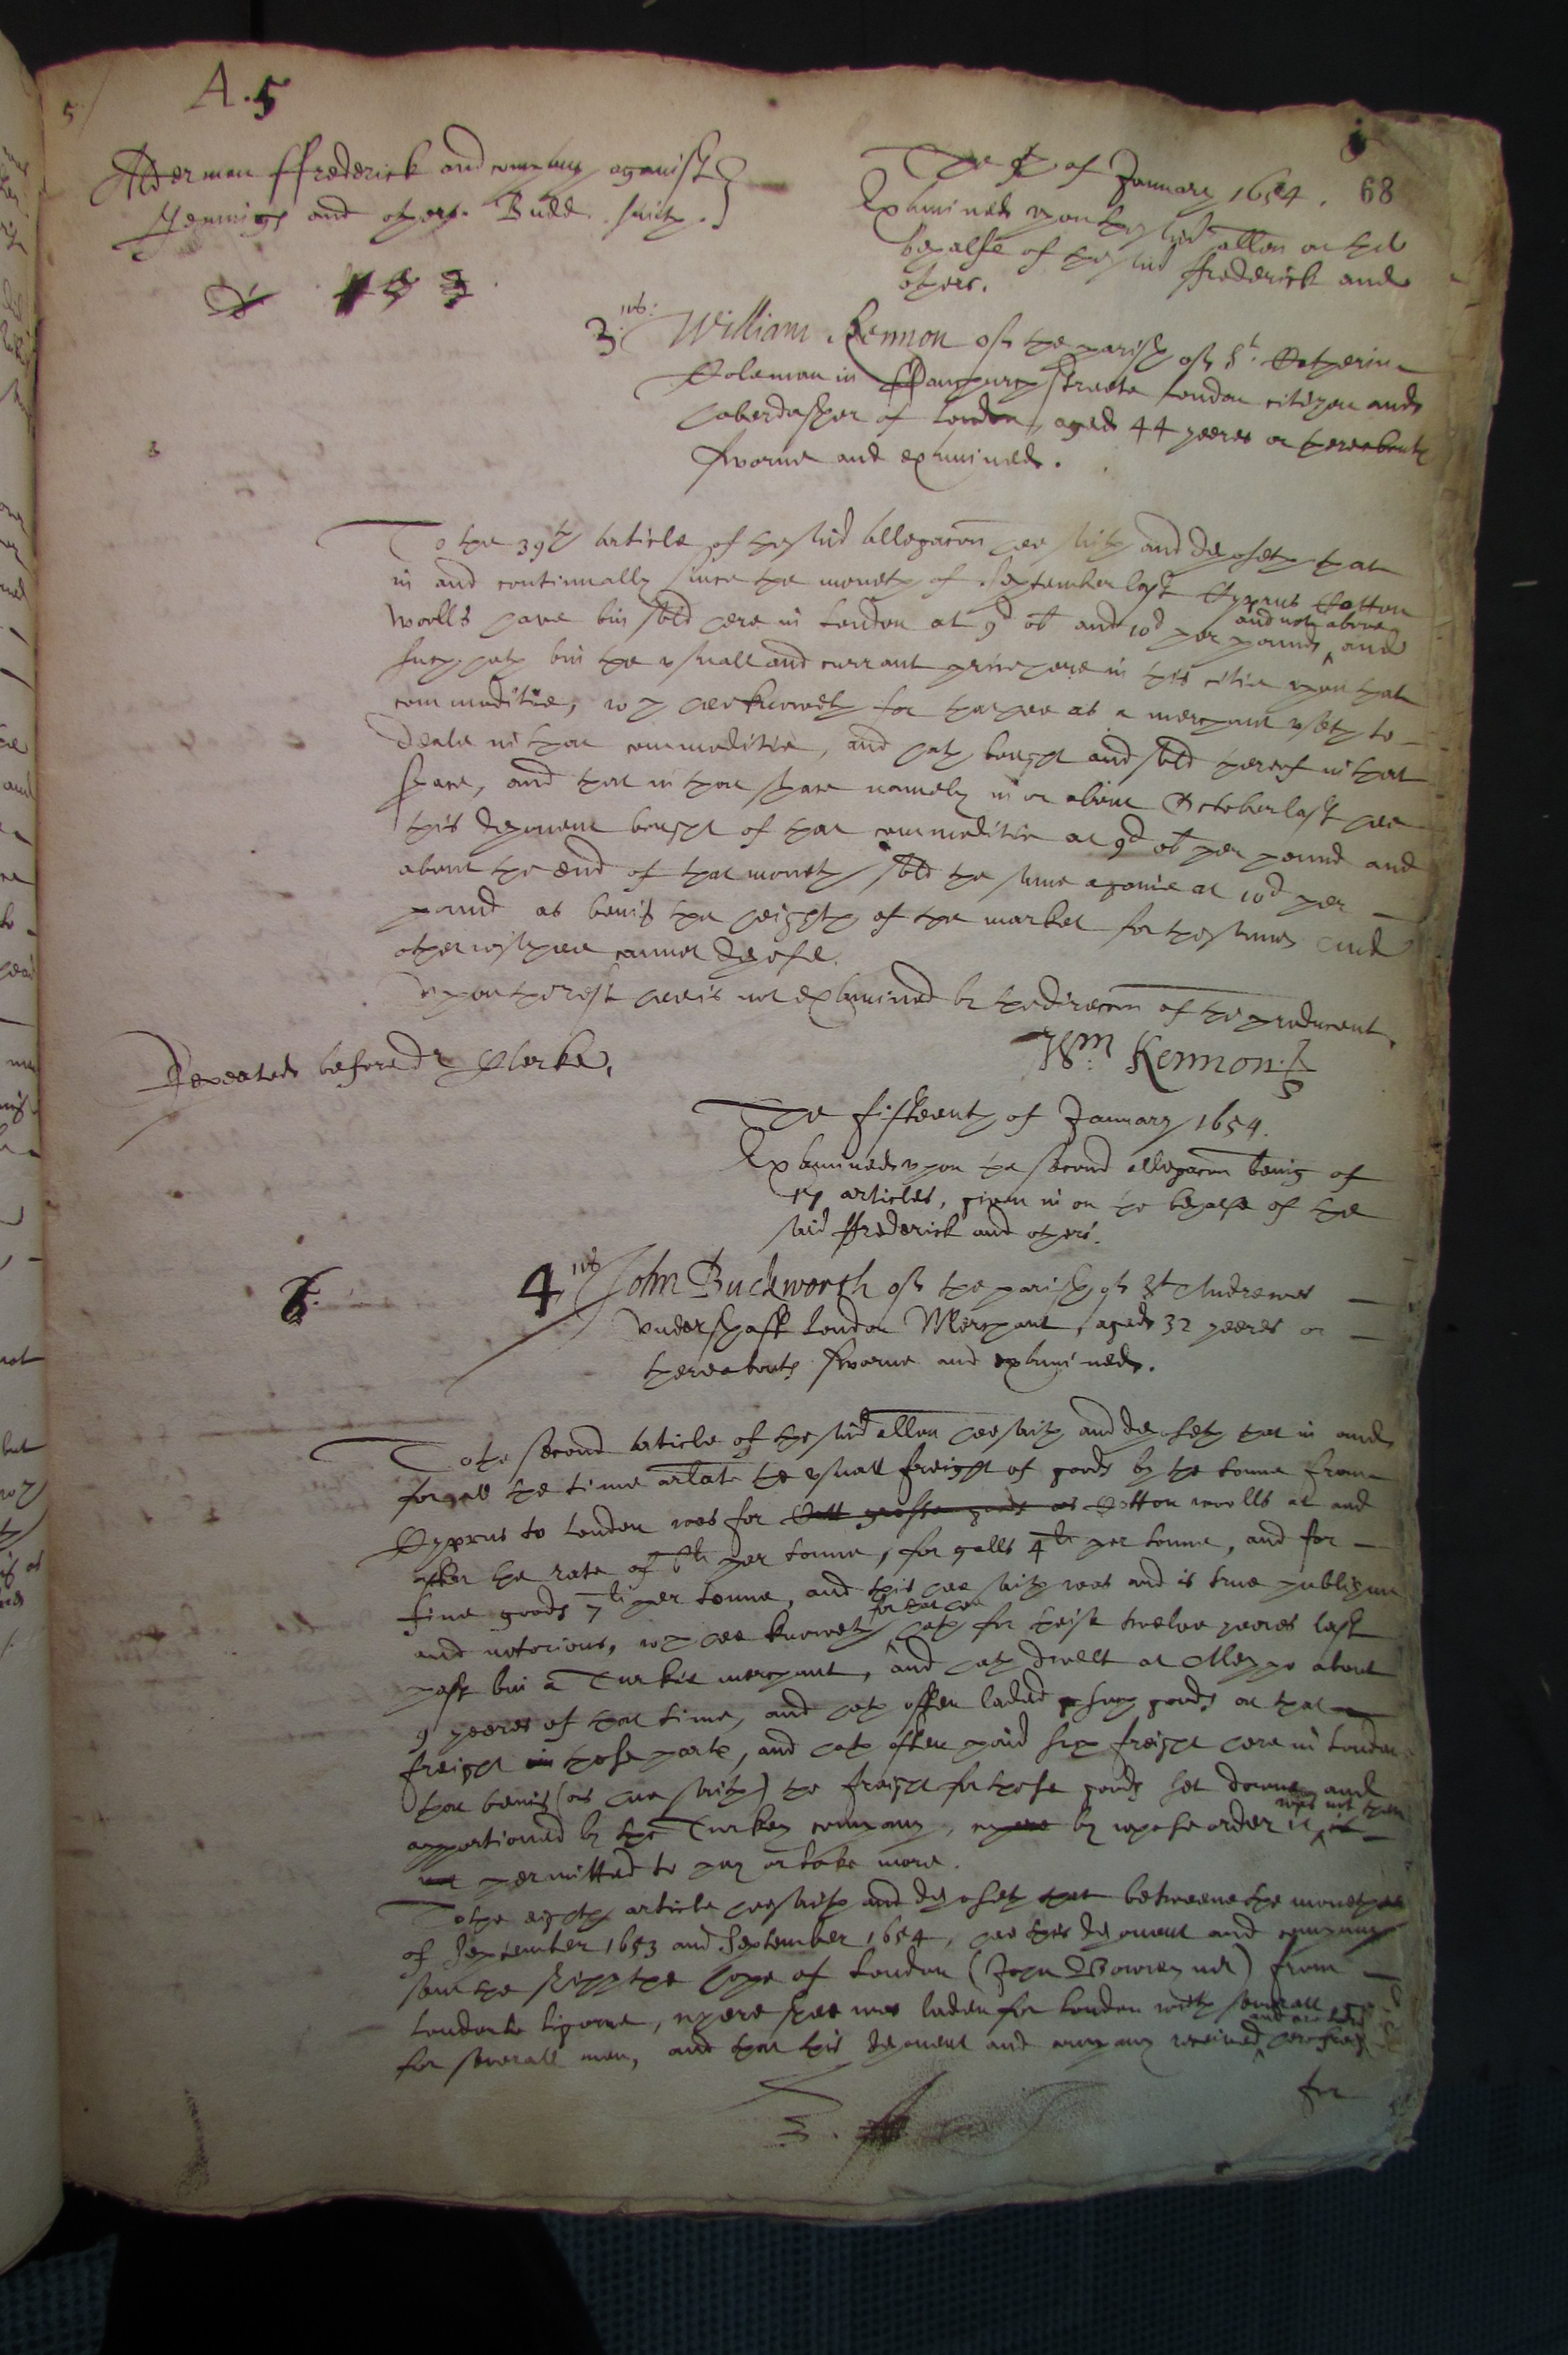 5/
A.5
The of January 1654. 68
Alderman ffrederick and company against
Jennings and others. Budd. Smith.
Examined upon the said allon on the
behalfe of the said ffrederick and
others.
3. us:
William Kennon of the parish of St. Catherin
Coleman in ffanchurch streete London citizen and
haberdasher of London, aged 44 yeeres or thereabouts
sworne and examined.
To the 39th article of the said allegacon hee saith and deposeth that
in and continually since the moneth of September last Cyprus Cotton
and not above
wooll's have bin sold here in London at 9d ob and 10d per pound, and
such hath bin the usuall and currant price here in this citie upon that
commoditie, wch hee knoweth for that hee as a merchant useth to
deale in that commoditie, and hath bought and sold thereof in that
space, and that in that space namely in or about October last hee
this deponent bought of that commoditie at 9d ob per pound and
about the end of that moneth sold the same againe at 10d per
pound as being the heighth of the market for the same And
otherwise hee cannot depose.
Upon the rest hee is not examined by the direccon of the producent.
Repeated before dr Clerke.
Wm. Kennon
The fifteenth of January 1654.
Examined upon the second allegacon being of
17 articles, given in on the behalfe of the
said ffrederick and others.
4 us
John Buckworth of the parish of St Andrewes
Undershaft London Merchant, aged 32 yeeres or
thereabouts sworne and examined.
To the second article of the said allon hee saith and deposeth that in and
for all the time arlate the usuall freight of goods by the tonne from
Cyprus to London was for Cotton woolls at and
after the rate of 6li per tonne, for galls 4li per tonne, and for
fine goods 7li per tonne, and this hee saith was and is true publique
for that hee
and notorious, wch hee knoweth hath for theise twelve yeeres last
past bin a Turkie merchant, and hath dwelt at Aleppo about
9 yeeres of that time, and hath often laded such goods at that
freight in those parts, and hath often paid such freight here in London
that being (as hee saith) the freight for those goods set downe and
was not then
apportioned by the Turkey company, where by whose order it
permitted to pay or take more.
To the eighth article hee saith and deposeth that betweene the monethes
of September 1653 and September 1654, hee this deponent and company
sent the shipp the hope of London (John Bowrey mr) from
London to Ligorne, where shee was laden for London with severall
for severall men, and that this deponent and company received
for